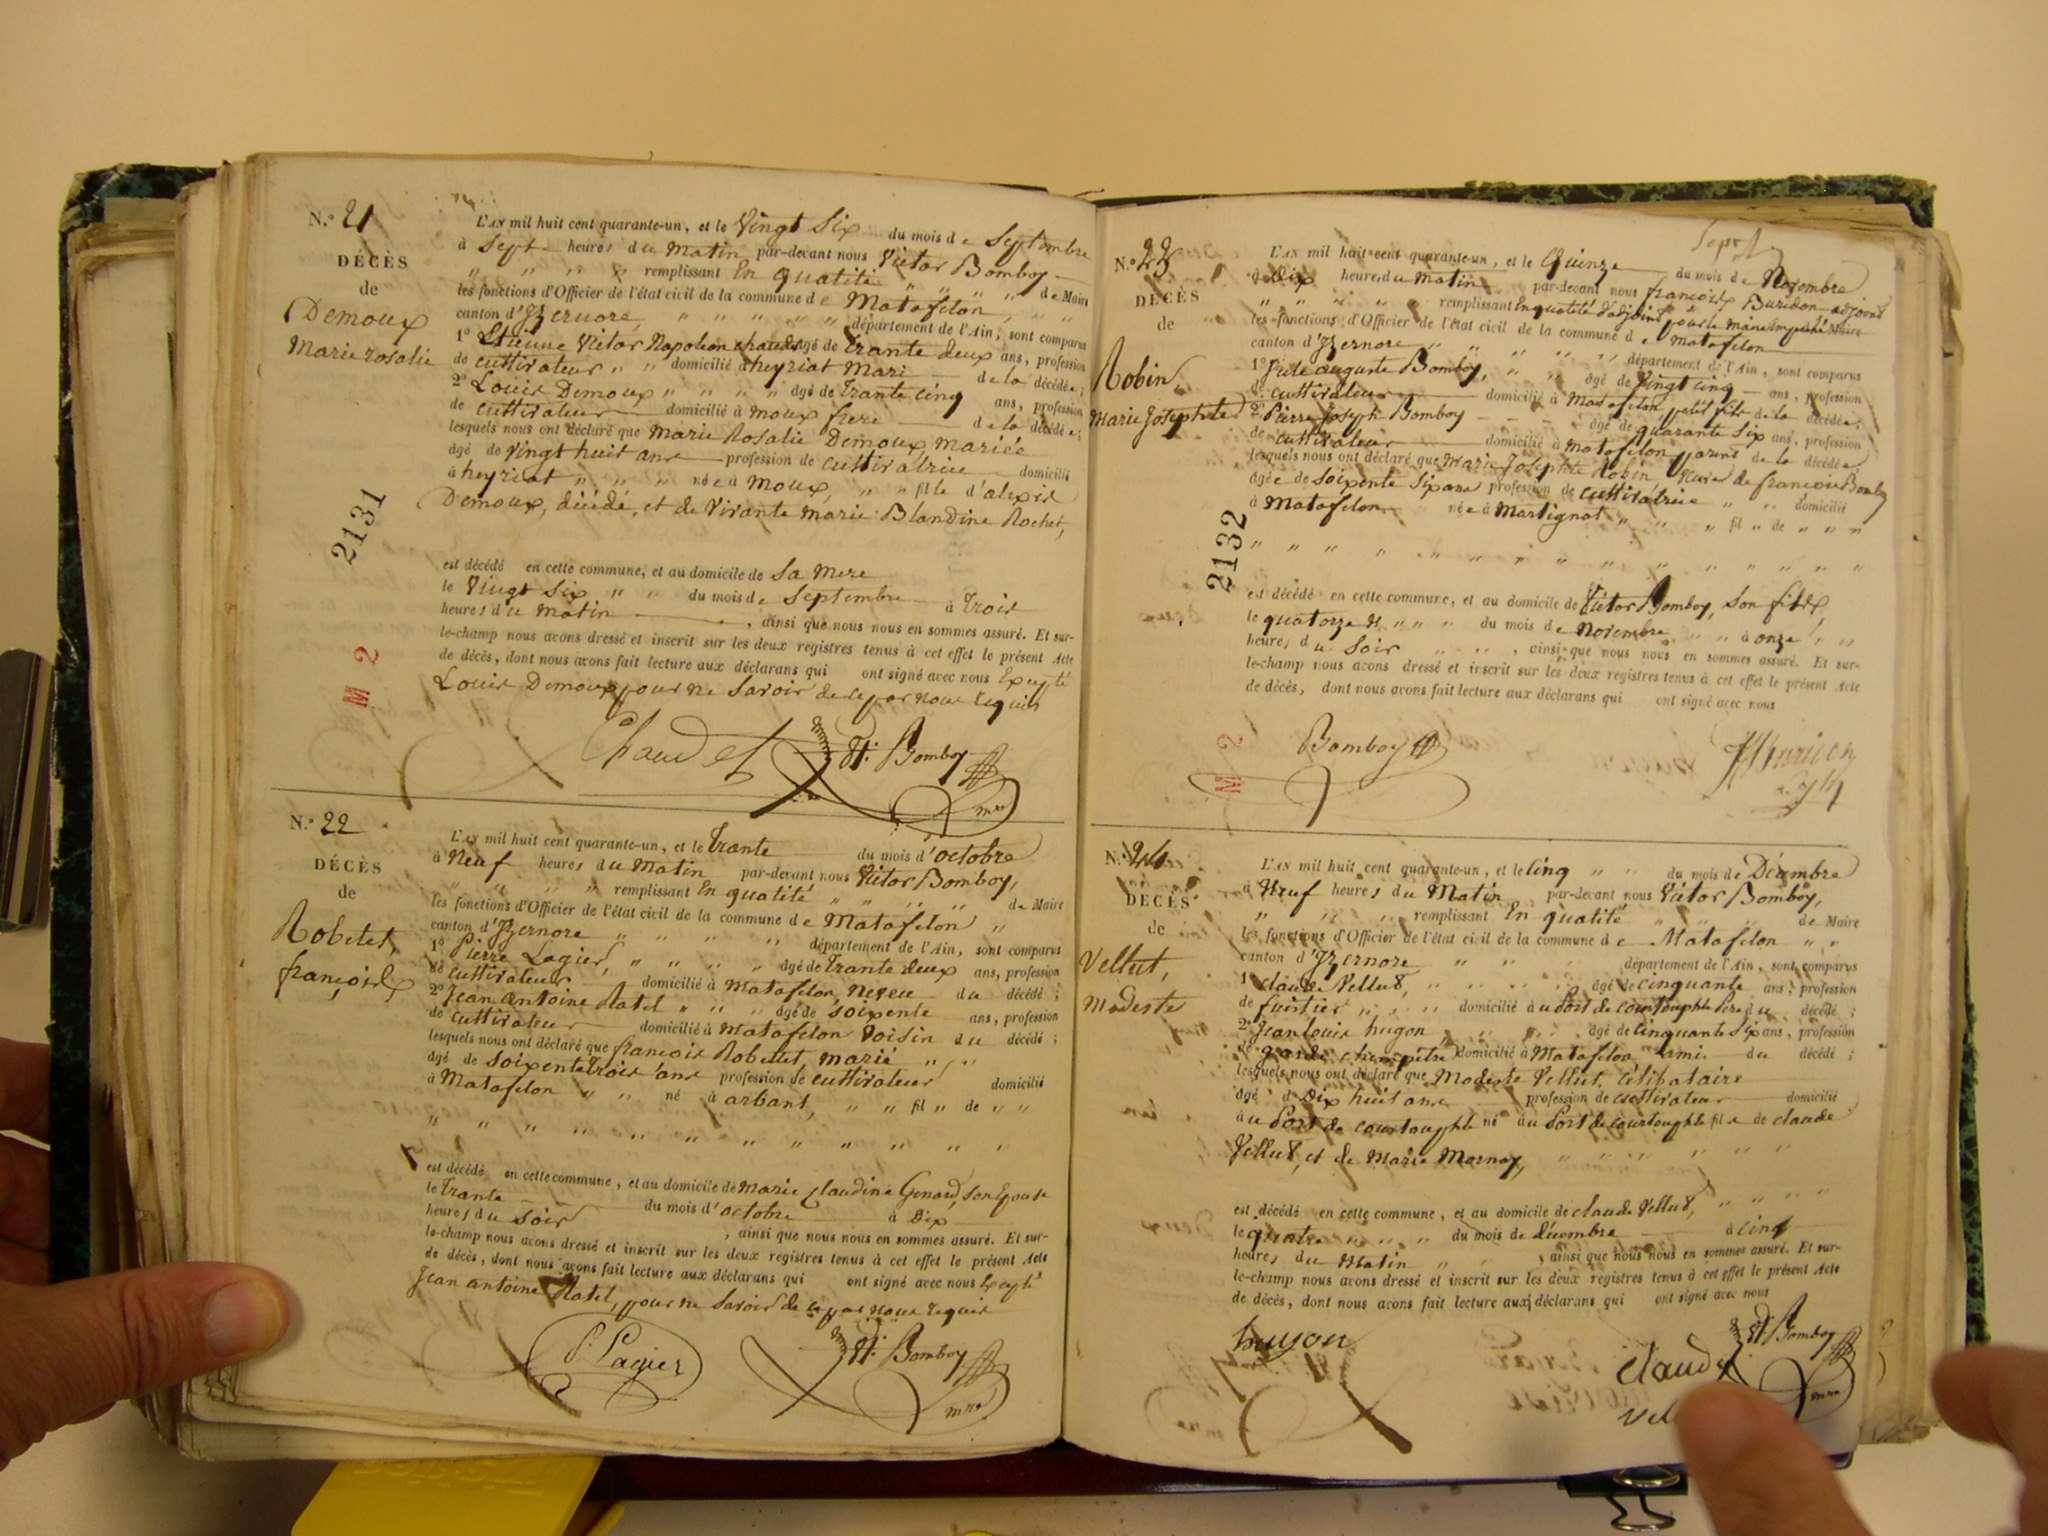 N.° 21
DÉCÈS
de
Demoux
Marie rosalie
L'AN mil huit cent quarante-un, et le Vingt Six du mois de Septembre
à Sept heures du Matin par-devant nous Victor Bomboy
" " " " remplissant En qualité " " " de Maire
les fonctions d'Officier de l'état civil de la commune de Matafelon " "
canton d'Izernore, " " " " " département de l'Ain, sont comparus
1° Etienne Victor Napoleon chaudet âgé de trante deux ans, profession
de cultirateur " " domicilié à heyriat Mari de la décédée;
2° Louis Demoux " " " " âgé de Trante cinq ans, profession
de cultirateur domicilié à moux frere de la décédée;
lesquels nous ont déclaré que Marie Rosalie Demoux, mariée
âgé de Vingt huit ans profession de cultiratrice domicilié
à heyriat " " " née à Moux, " " fille d'alexis
Demoux, décédé, et de Virante marie Blandine Rochet,
2131
est décédé en cette commune, et au domicile de Sa Mere
le Vingt Six " " du mois de Septembre à trois
heures du Matin, ainsi que nous nous en sommes assuré. Et sur-
le-champ nous avons dressé et inscrit sur les deux registres tenus à cet effet le présent Acte
de décès, dont nous avons fait lecture aux déclarans qui ont signé avec nous Excepté
Louis Demoux pour ne Savoir de ce par nous requis
M 2
Chaudet Vt: Bomboy
mre
N.° 22
DÉCÈS
de
Robetet,
françois
L'AN mil huit cent quarante-un, et le Trante du mois d'octobre
à Neuf heures du Matin par-devant nous Victor Bomboy,
" " " " remplissant En qualité " " " " de Maire
les fonctions d'Officier de l'état civil de la commune de Matafelon "
canton d'Izernore " " " " département de l'Ain, sont comparus
1° Pierre Lagier, " " " " âgé de trante deux ans, profession
de cultirateur domicilié à Matafelon, Neveu du décédé;
2° Jean antoine Ratel " " " âgé de Soixente ans, profession
de cultirateur domicilié à Matafelon Voisin du décédé;
lesquels nous ont déclaré que françois Robettet marié " "
âgé de Soixente trois ans profession de cultirateur domicilié
à Matafelon " " né à arbant, " " fil " de " "
" " " " " " " " " " " "
est décédé en cette commune, et au domicile de Marie claudine Genard, Son Epouse
le Trante du mois d'octobre à Dix
heures du Soir, ainsi que nous nous en sommes assuré. Et sur-
le-champ nous avons dressé et inscrit sur les deux registres tenus à cet effet le présent Acte
de décès, dont nous avons fait lecture aux déclarans qui ont signé avec nous Excepté
Jean antoine Ratel, pour ne Savoir de ce par nous requis
P. Lagier Vt: Bomboy
mre
N.° 23
DÉCÈS
de
Robin,
Marie Josephte
L'AN mil huit cent quarante-un, et le Quinze du mois de Novembre
à Dix heures du Matin par-devant nous françois Buridon adjoint
" " " " " remplissant En qualité d'adjoint pour le maire Empeché Maire
les fonctions d'Officier de l'état civil de la commune de Matafelon
canton d'Izernore " " " " " département de l'Ain, sont comparus
1° Jule auguste Bomboy, " " âgé de Vingt cinq ans, profession
de cultirateur domicilié à Matafelon petit fils de la décédée;
2° Pierre Joseph Bomboy âgé de quarante Six ans, profession
de cultirateur domicilié à Matafelon parent de la décédée
lesquels nous ont déclaré que Marie Josephte Robin Veuve de françois Bomboy
âgée de Soixente Six ans profession de cultiratrice " " domicilié
à Matafelon née à Martignat " " " fil " de " " "
" " " " " " " " " " " " "
2132
est décédé en cette commune, et au domicile de Victor Bomboy, Son fils,
le quatorze " " " " du mois de Novembre " " à onze " "
heures du Soir " " ", ainsi que nous nous en sommes assuré. Et sur-
le-champ nous avons dressé et inscrit sur les deux registres tenus à cet effet le présent Acte
de décès, dont nous avons fait lecture aux déclarans qui ont signé avec nous
M 2
Bomboy
N.° 24
DÉCÈS
de
Vellut,
Modeste
L'AN mil huit cent quarante-un, et le cinq " " du mois de Décembre
à Neuf heures du Matin par-devant nous Victor Bomboy,
" " " " remplissant En qualité " " " de Maire
les fonctions d'Officier de l'état civil de la commune de Matafelon " "
canton d'Izernore " " " département de l'Ain, sont comparus
1° claude Vellut, " " " " " âgé de cinquante ans, profession
de fustier " " " domicilié à u Port de courtouphle Pere du décédé;
2° Jean louis hugon " " " âgé de cinquante Six ans, profession
de garde champêtre domicilié à Matafelon ami du décédé;
lesquels nous ont déclaré que Modeste Vellut, célibataire
âgé d Dix huit ans profession de cultirateur domicilié
à u Port de courtouphle né à u Port de courtouphle fils de claude
Vellut, et de Marie Mornay, " " " " " "
est décédé en cette commune, et au domicile de claude Vellut, " " " "
le quatre " " " " du mois de Décembre à cinq
heures du Matin " ", ainsi que nous nous en sommes assuré. Et sur-
le-champ nous avons dressé et inscrit sur les deux registres tenus à cet effet le présent Acte
de décès, dont nous avons fait lecture aux déclarans qui ont signé avec nous
hugon Vt Bomboy
claude mre